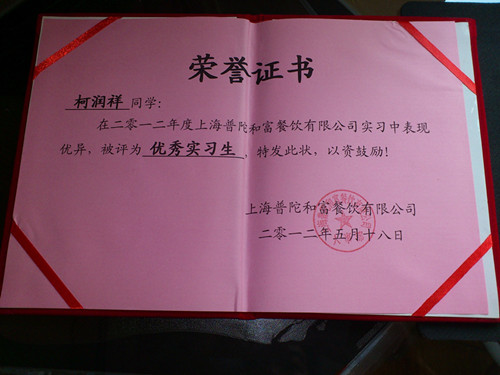 荣誉证书
柯润祥 同学:
在二零一二年度上海普陀和富餐饮有限公司实习中表现
优异，被评为 优秀实习生，特发此状，以资鼓励!
上海普陀和富餐饮有限公司
二零一二年五月十八日